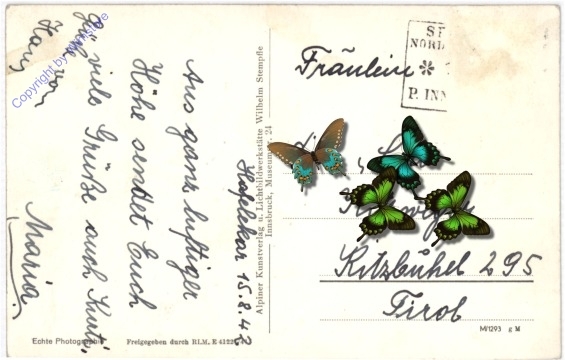 Hafelekar 15.8.42
Aus ganz luftiger
Höhe sendet Euch
viele Grüße auch Kurt.
Maria
Hans
Copyright by
Alpiner Kunstverlag u. Lichtbildwerkstätte Wilhelm Stempfle
Innsbruck, Museumstr. 24
Echte Photographie
Freigegeben durch RLM.
Fräulein
NORD
P. INN
Kitzbühel 295
Tirol
M/1293 g M